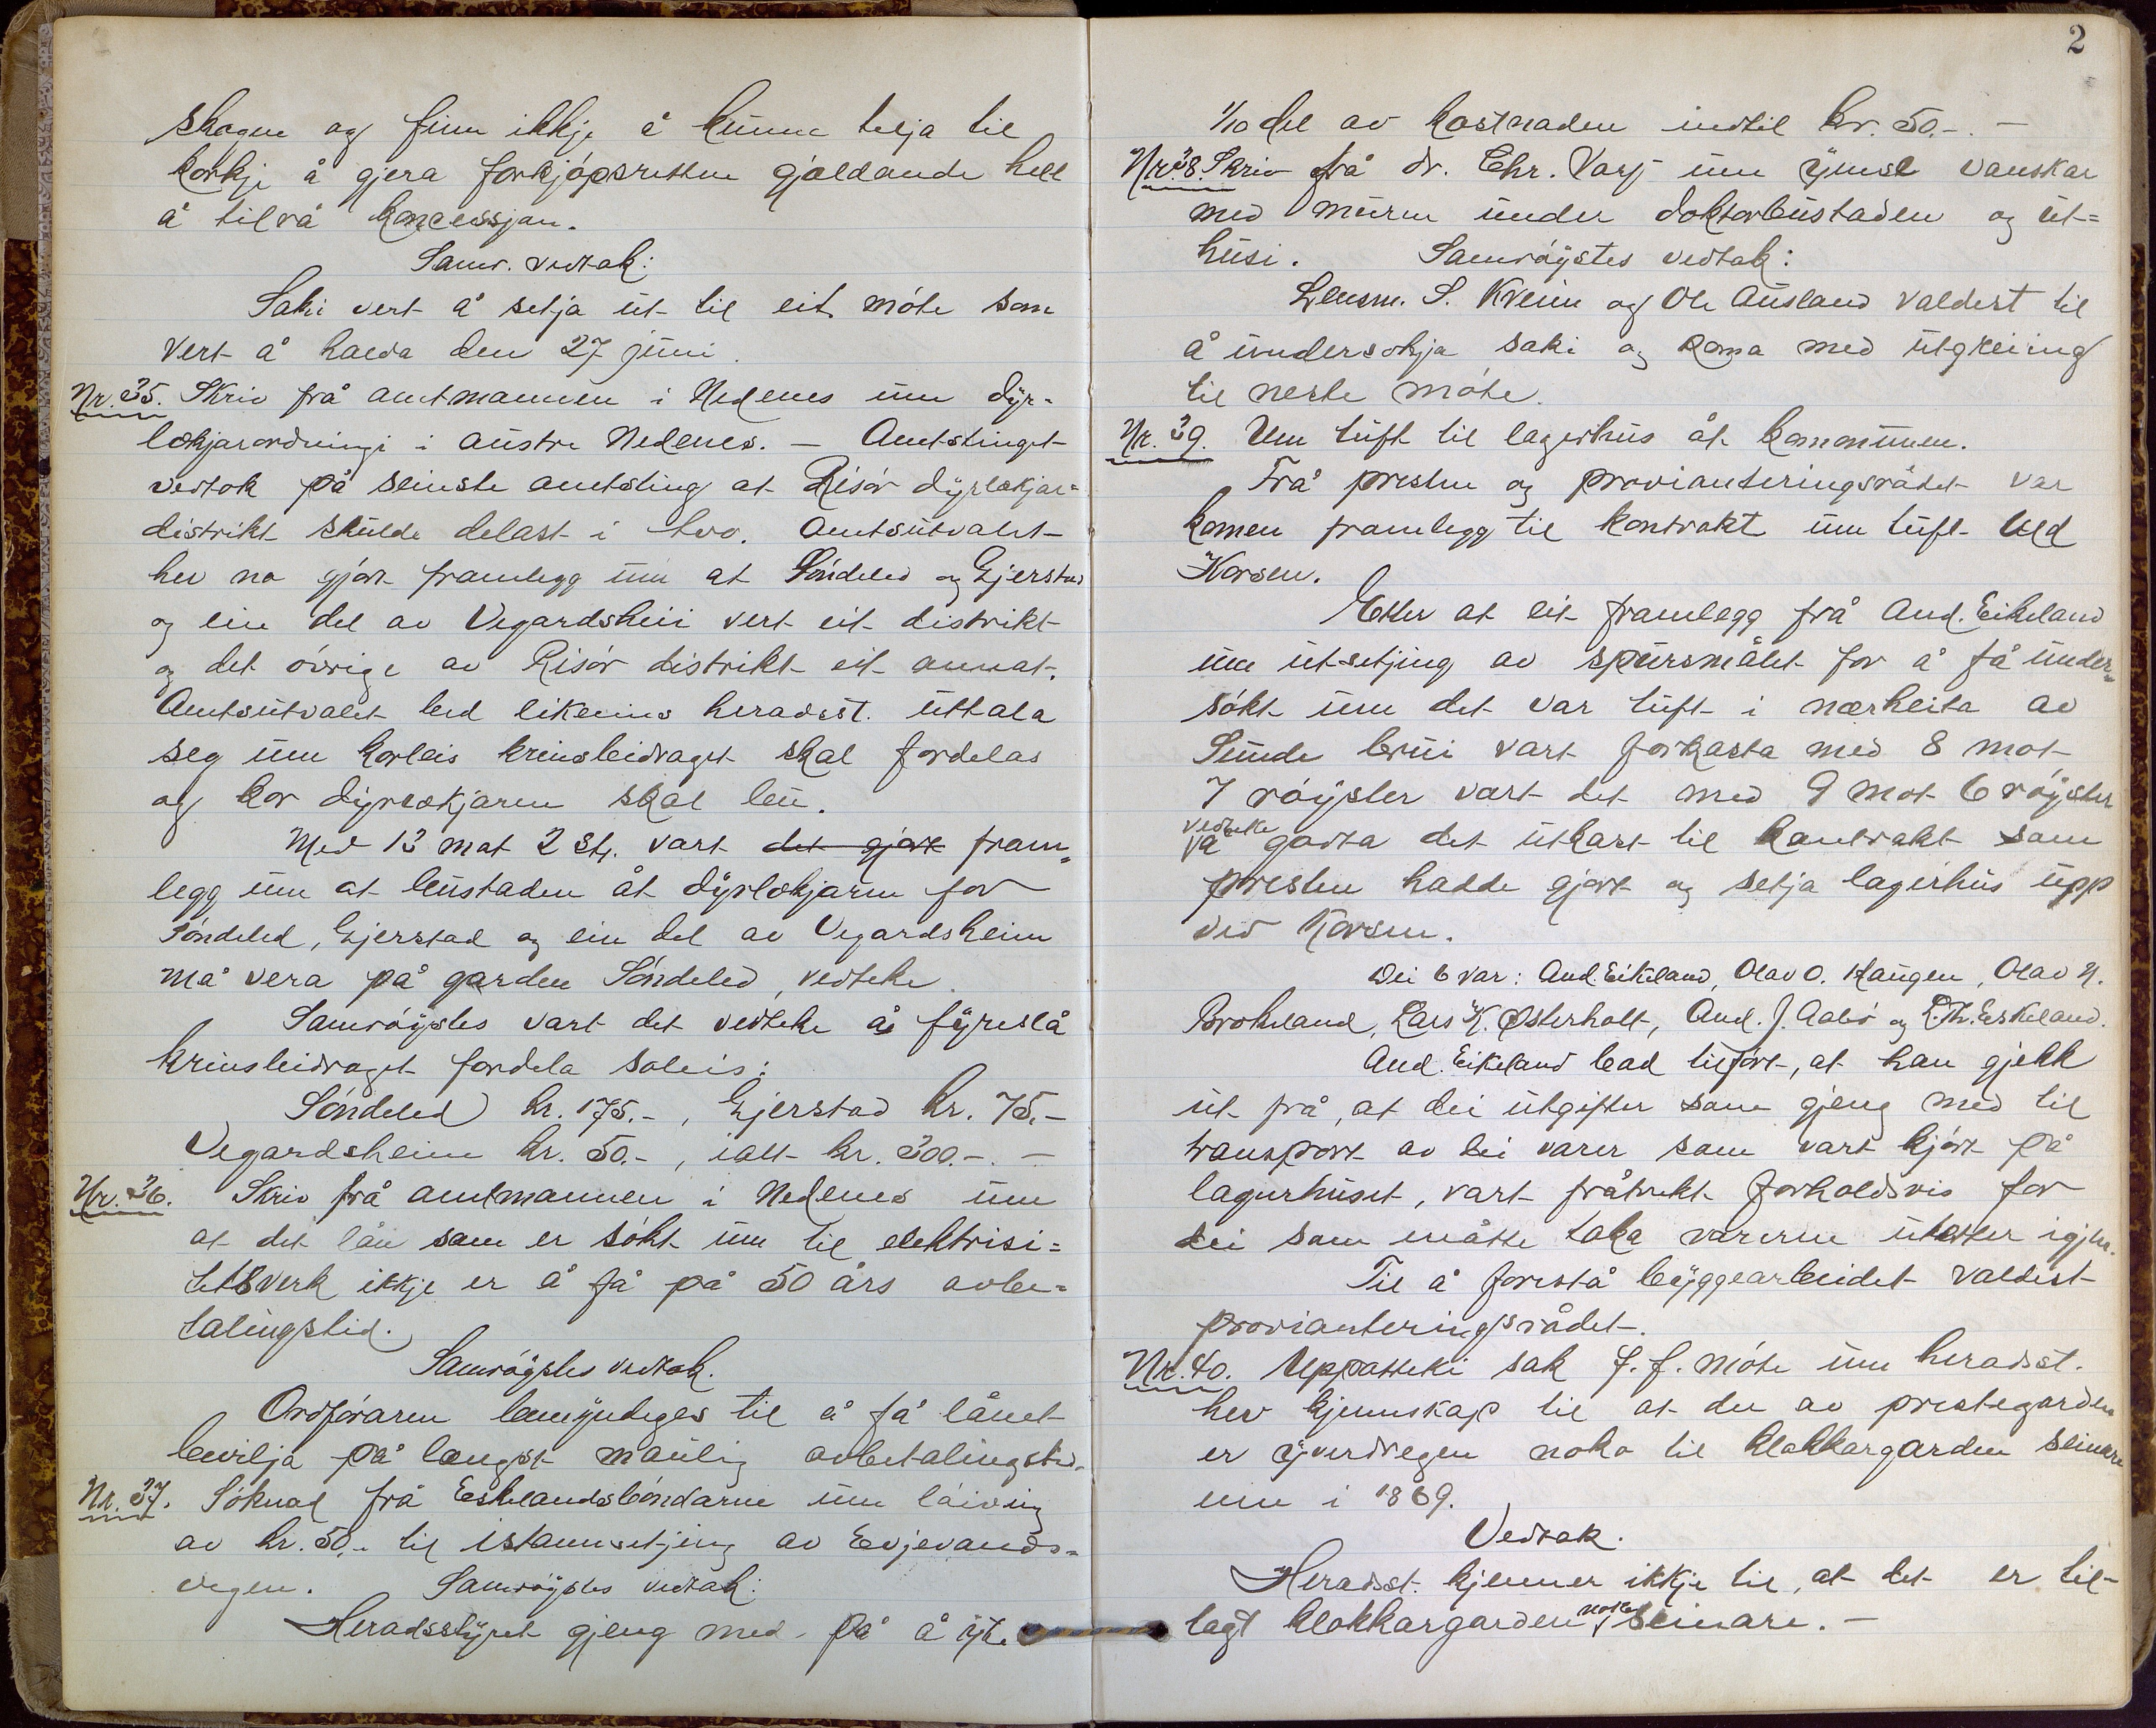 skogen og finn ikkje å kunna telja til
korkje å gjera forkjöpsretten gjeldande hell
å tilrå koncessjon.
Samr. vedtak:
Saki vert å setja ut til eit möte som
vert å halda den 27 juni.
Nr. 35. Skriv frå amtmannen i Nedenes um dyr-
lækjarordningi i austre Nedenes. — Amtstinget
vedtok på seinste amtsting at Risör dyrlækjar-
distrikt skulde delast i tvo. Amtsutvalet
hev no gjort framlegg um at Söndeled og Gjerstad
og ein del av Vegardsheii vert eit distrikt
og det övrige av Risör distrikt eit annat.
Amtsutvalet bed likeeins heradsst. uttala
seg um korleis krinsbidraget skal fordelas
og kor dyrlækjaren skal bu.
Med 13 mot 2 st. vart det gjort fram-
legg um at bustaden åt dyrlækjaren for
Söndeled, Gjerstad og ein del av Vegardsheim
må vera på garden Söndeled, vedteke.
Samröystes vart det vedteke å fyreslå
krinsbidraget fordela soleis:
Söndeled kr. 175.-, Gjerstad kr. 75.-
Vegardsheim kr. 50.-, ialt kr. 300.-. —
Nr. 36. Skriv frå amtmannen i Nedenes um
at det lån som er sökt um til elektrisi-
tetsverk ikkje er å få på 50 års avbe-
talingstid.
Samröystes vedtak.
Ordföraren bemyndiges til å få lånet
bevilja på længst mauleg avbetalingstid.
Nr. 37. Söknad frå Eskelandsböndarne um löiving
av kr. 50.- til istannsetjing av Evjevands-
vegen. Samröystes vedtak:
Heradsstyret gjeng med på å yte
2
1/10 del av kostnaden indtil kr. 50.-. —
Nr. 38. Skriv frå dr. Chr. Varp um ymse vanskar
med muren under doktorbustaden og ut-
husi. Samröystes vedtak:
Lensm. S. Kveim og Ole Ausland valdest til
å undersökja saki og koma med utgreiing
til neste möte.
Nr. 39. Um tuft til lagerhus åt kommunen.
Frå presten og provianteringsrådet var
komen framlegg til kontrakt um tuft ved
Korsen.
Etter at eit framlegg frå And. Eikeland
um utsetjing av spursmålet for å få under-
sökt um det var tuft i nærheita av
Sunde brui vart forkasta med 8 mot
7 röyster vart det med 9 mot 6 röyster
vedteke
å godta det utkast til kontrakt som
presten hadde gjort og setja lagerhus upp
ved Korsen.
Dei 6 var: And. Eikeland, Olav O. Haugen, Olav N.
Brokeland, Lars K. Østerholt, And. J. Aabö og L. Th. Eskeland.
And. Eikeland bad tilfört, at han gjekk
ut frå, at dei utgifter som gjeng med til
transport av dei varer som vart kjört på
lagerhuset, vart fråtrekt forholdsvis for
dei som måtte taka varerne utatter igjen.
Til å forestå byggearbeidet valdest
provianteringsrådet.
Nr. 40. Uppatteki sak f. f. möte um heradsst.
hev kjennskap til at der av prestegarden
er yverdregen noko til klokkargarden seinare
enn i 1869.
Vedtak.
Heradsst. kjenner ikkje til, at det er til-
lagt klokkargarden noko seinare. —